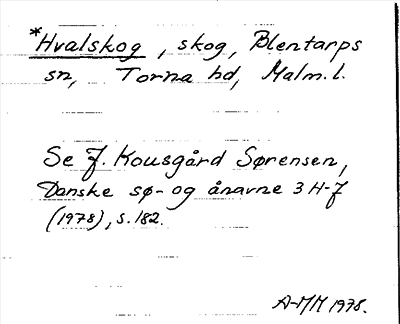 *Hvalskog, skog, Blentarps
sn, Torna hd, Malm.l.
Se J. Kousgård Sørensen,
Danske sø- og ånavne 3 H-J
(1978), s. 182.
A-MM 1978.